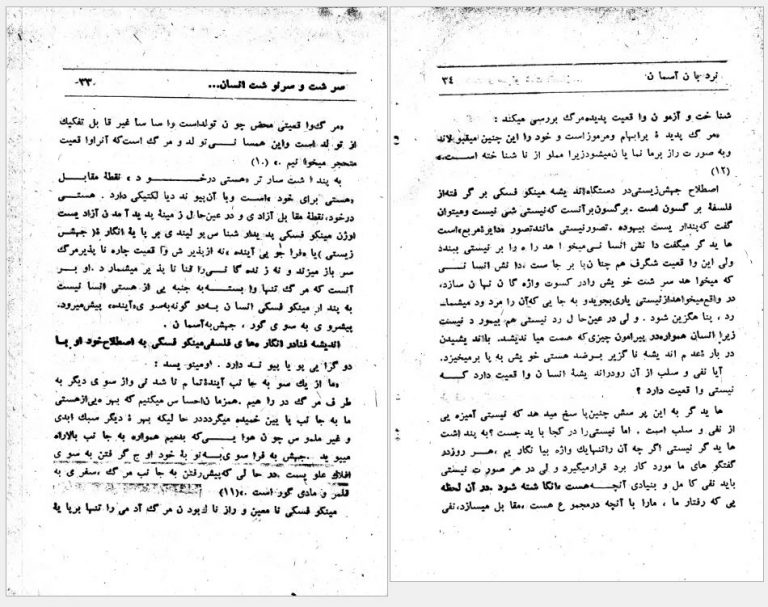 سر شت و سر نو شت انسان...
۳۳-
«مر گ»وا قعیتی محض چو ن تولداست وا سا سا غیر قا بل تفکیک
از تو لد است واین همسا نــی تو لد و مر گ است‌که آنراوا قعیت
متحجر میخوا نیم .» (۱۰)
به پند ا شت سار تر «هستی درخــــو د » نقطهٔ مقابــل
«هستی برای خود »است وبا آن‌پیو ند دیا لکتیکی دارد . هستــی
درخود،نقطهٔ مقا بل آزادی و در عین‌حا ل زمینهٔ پدید آمد ن آزاد یست
اوژن مینکو فسکی پد یدار شنا س‌پو لیند ی بر پا یهٔ ا نگار ۀ( جهش
زیستی )یا «فرا جو یی آینده» «نه ازپذیر ش وا قعیت چاره نا پذیرمرگ
سر باز میزند و نه ز نده گا نــی‌را فنا نا پذ یر میشمارد .او بر
آنست که مر گ تنها وا بستــه‌به جنبه یی از هستی انسا نیست
به پند ار مینکو فسکی انسا ن به‌دو گونه‌به‌سو ی‌«آینده» پیش‌میرود.
پیشرو ی به سو ی گور ، جهش‌به‌آسما ن .
اندیشه فنادر انگار ه‌ها ی فلسفی‌مینکو فسکی به اصطلاح‌خود او با
دو گرا یی پو یا پیو ند دارد . اومینو یسد :
«ما از یك سو به جا نب آیندۀ‌نا م تا شد نی واز سو ی دیگر به
طر ف مر گ در را هیم .همزما ن‌احسا س میکنیم که بهر ه‌یی‌ازهستی
ما به جا نب پا یین خمیده میگرددر حا لیکه بهر ۀ دیگر سبك ابدی
و غیر ملمو س چو ن هوا یــی‌که بدمیم همواره به جا نب بالاراه
میپو ید .جهش به فرا سو ی‌بـه نو بهٔ خود او ج گر فتن به سو ی
افلاك علو یست .در حا لی که‌پیش‌رفتن به جا نب مر گ ،سفر ی به
قلمر و مادی گور است .»(۱۱)
مینکو فسکی نا معین و راز نا ك‌بود ن مر گ آد می را تنها برپا یهٔ
نرد با ن آسما ن
۳٤
شنا خت و آزمو ن وا قعیت پدیده‌مرگ بررسی میکند :
«مر گ پدید ۀ پرابهام ومرموزاست و خود را این چنین میقبو‌لاند
وبه صور ت راز برما نما یا ن‌میشودزیرا مملو از نا شنا خته اســت.»
(۱۲)
اصطلاح جهش‌زیستی‌در دستگاه‌اند یشه مینکو فسکی بر گر فته‌از
فلسفۀ بر گسون است .برگسون‌برآنست که‌نیستی شی نیست ومیتوان
گفت که‌پندار یست بیهوده .تصورنیستی مانند‌تصور «دایرۀمربع»است
ها ید گر میگفت دا نش انسا نــی‌میخو ا هد را ه را بر نیستی ببندد
ولی این وا قعیت شگرف هم چنا ن‌پا بر جا ست ،دا نش انسا نــی
که میخوا هد سر شت خو یش رادر کسوت واژه گا ن نها ن سازد،
در واقع‌میخواهدازنیستی یاری‌بجویدو به جا یی که‌آن را مرد ود میشما-
رد ، پنا هگزین شود . و لی در عین‌حا ل رد نیستی هم بیهو د ه نیست
زیرا انسان همواره‌در پیرامون چیزی‌که هست میا ندیشد . بااند یشیدن
در بار ۀعد م اند یشه نا گزیر برضد هستی خو یش به پا برمیخیزد.
آیا نفی و سلب از آن رودراند یشهٔ انسا ن وا قعیت دارد کــه
نیستی وا قعیت دارد ؟
ها ید گر به این پر سش چنین‌پا سخ مید هد که نیستی آمیزه یی
از نفی و سلب است . اما نیستی‌را در کجا با ید جست ؟به پند اشت
ها ید گر نیستی اگر چه آن راتنهایك واژه بیا نگار یم ،هــر روزدر
گفتگو های ما مورد کار برد قرارمیگیرد و لی در هر صور ت نیستی
باید نفی کا مل و بنیادی آنچــه‌هست «انگا شته شود .در آن لحظه
یی که رفتار ما ، مارا با آنچه درمجمو ع هست «مقا بل میسازد،نفی